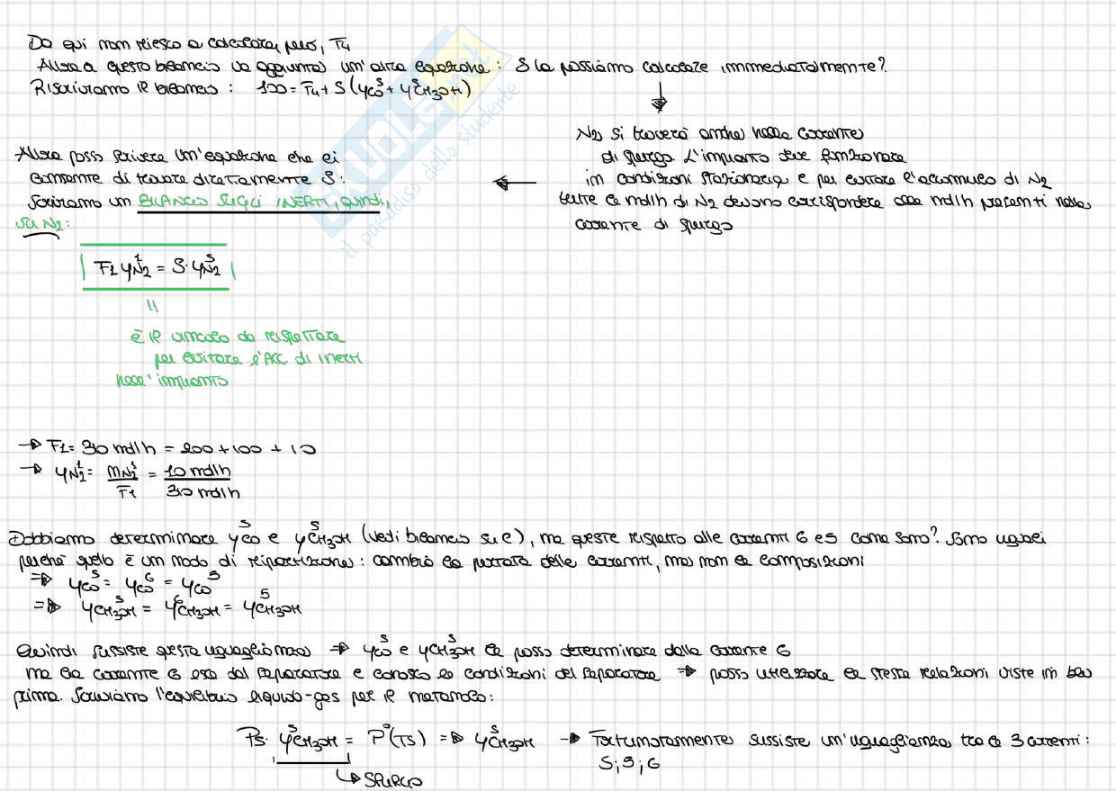 Da qui non riesco a calcolare, però, F4
Allora a questo bilancio va aggiunta un'altra equazione: S la possiamo calcolare immediatamente?
Riscriviamo il bilancio: 100 = F4 + S (yCO^S + yCH3OH^S)
N2 si troverà anche nella corrente
di spurgo. L'impianto deve funzionare
in condizioni stazionarie e per evitare l'accumulo di N2
tutte le mol/h di N2 devono corrispondere alle mol/h presenti nella
corrente di spurgo
Allora posso scrivere un'equazione che ci
consente di trovare direttamente S:
Scriviamo un BILANCIO SUGLI INERTI, quindi,
su N2:
F1 yN2^1 = S · yN2^S
è il vincolo da rispettare
per evitare l'ACC di inerti
nell'impianto
→ F1 = 310 mol/h = 200 + 100 + 10
→ yN2^1 = nN2^1 / F1 = 10 mol/h / 310 mol/h
Dobbiamo determinare yCO^S e yCH3OH^S (vedi bilancio su C), ma queste rispetto alle correnti 6 e 5 come sono? Sono uguali
perché quello è un nodo di ripartizione: cambia la portata delle correnti, ma non la composizioni
⇒ yCO^S = yCO^6 = yCO^5
⇒ yCH3OH^S = yCH3OH^6 = yCH3OH^5
Quindi sussiste questa uguaglianza ⇒ yCO^S e yCH3OH^S le posso determinare dalla corrente 6
ma la corrente 6 esce dal separatore e conosco le condizioni del separatore ⇒ posso utilizzare le stesse relazioni viste in
prima. Scriviamo l'equilibrio liquido-gas per il metanolo:
PS · yCH3OH^S = P°(TS) ⇒ yCH3OH^S → Fortunatamente sussiste un'uguaglianza tra le 3 correnti:
S; 5; 6
↳ SPURGO